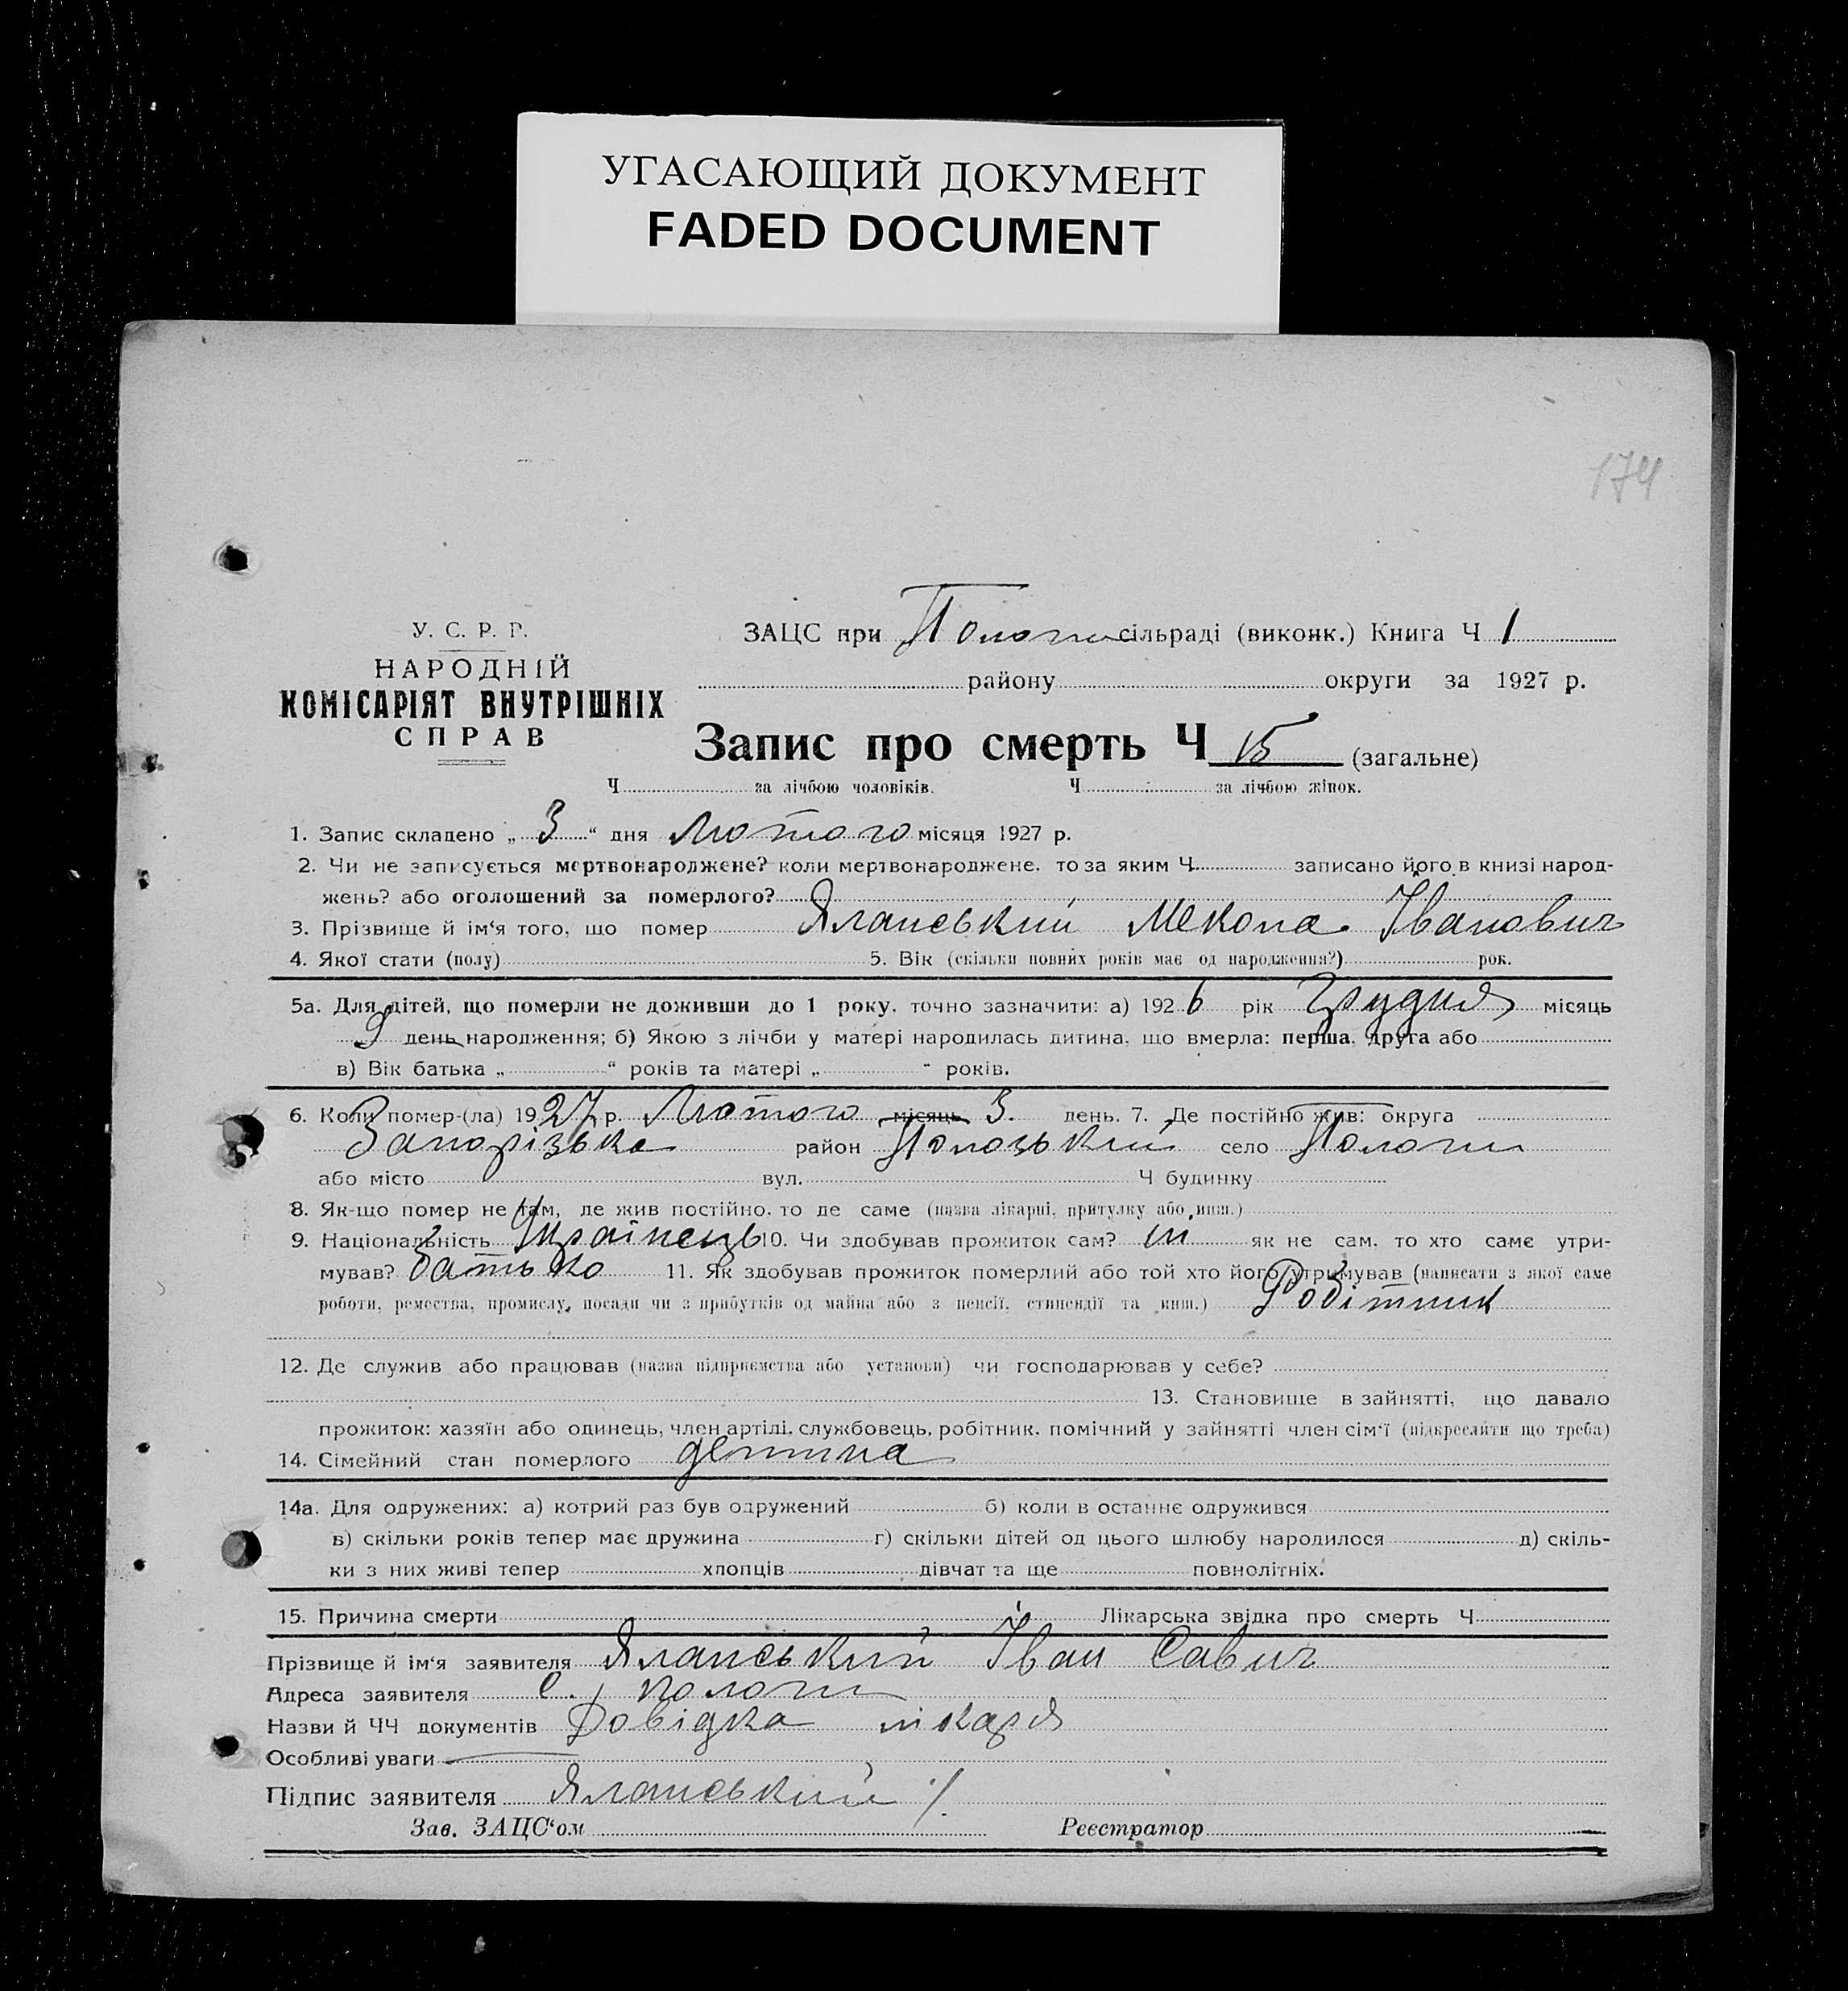 УГАСАЮЩИЙ ДОКУМЕНТ
FADED DOCUMENT
174
У. С. Р. Р.
НАРОДНІЙ
КОМІСАРІЯТ ВНУТРІШНІХ
СПРАВ
ЗАЦС при Пологи сільраді (виконк.) Книга Ч 1
району округи за 1927 р.
Запис про смерть Ч 15 (загальне)
Ч за лічбою чоловіків. Ч за лічбою жінок.
1. Запис складено „ 3 “ дня Лютого місяця 1927 р.
2. Чи не записується мертвонароджене? коли мертвонароджене, то за яким Ч записано його в книзі народ-
жень? або оголошений за померлого?
3. Прізвище й ім‘я того, що помер Яланський Мекола Іванович
4. Якої стати (полу) 5. Вік (скільки повних років має од народження?) рок.
5а. Для дітей, що померли не доживши до 1 року, точно зазначити: а) 1926 рік Грудня місяць
9 день народження; б) Якою з лічби у матері народилась дитина, що вмерла: перша, друга або
в) Вік батька „ “ років та матері „ “ років.
6. Коли помер-(ла) 1927 р. Лютого місяць 3. день. 7. Де постійно жив: округа
Запорізька район Пологський село Пологи
або місто вул. Ч будинку
8. Як-що помер не там, де жив постійно, то де саме (назва лікарні, притулку або инш.)
9. Національність Українець 10. Чи здобував прожиток сам? ні як не сам, то хто саме утри-
мував? батько 11. Як здобував прожиток померлий або той хто його утримував (написати з якої саме
роботи, ремества, промислу, посади чи з прибутків од майна або з пенсії, стипендії та инш.) Робітник
12. Де служив або працював (назва підприємства або установи) чи господарював у себе?
13. Становище в зайнятті, що давало
прожиток: хазяїн або одинець, член артілі, службовець, робітник, помічний у зайнятті член сім‘ї (підкреслити що треба)
14. Сімейний стан померлого детина
14а. Для одружених: а) котрий раз був одружений б) коли в останнє одружився
в) скільки років тепер має дружина г) скільки дітей од цього шлюбу народилося д) скіль-
ки з них живі тепер хлопців дівчат та ще повнолітніх.
15. Причина смерти Лікарська звідка про смерть Ч
Прізвище й ім‘я заявителя Яланський Іван Савич
Адреса заявителя с. Пологи
Назви й ЧЧ документів Довідка лікаря
Особливі уваги
Підпис заявителя Яланський
Зав. ЗАЦС‘ом Реєстратор